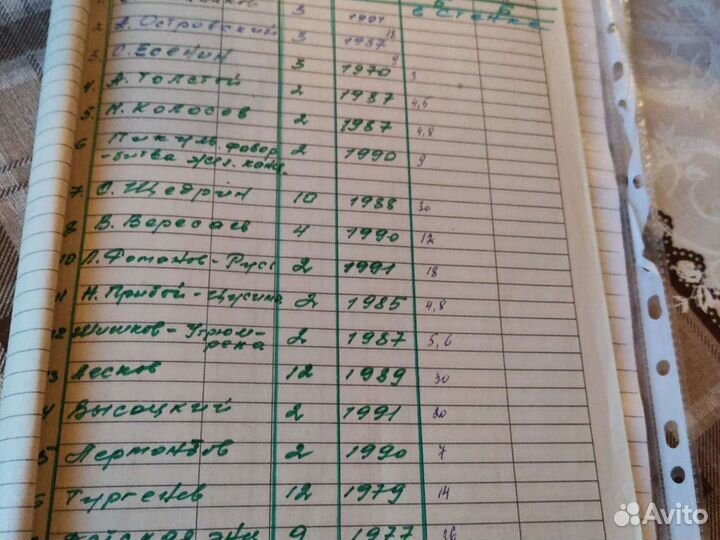 3 1981
в стенке
2 А. Островский 3 1987 18
3. С. Есенин 3 1970 9
4. А. Толстой 2 1987 3
5. Н. Колосов 2 1987 4,5
6 Пикуль фавор. 2 1990 4,8
-битва жел. канц. 9
7. С. Щедрин 10 1988 30
8 В. Вересаев 4 1990 12
10 Л. Романов-Русс 2 1991 18
11 Н. Прибой-Цусима 2 1985 4,8
12 Шишков-Угрюм- 2 1987 5,6
река
3 Лесков 12 1989 30
4 Высоцкий 2 1991 20
5 Лермонтов 2 1990 7
6 Тургенев 12 1979 14
9 1977 36
Avito